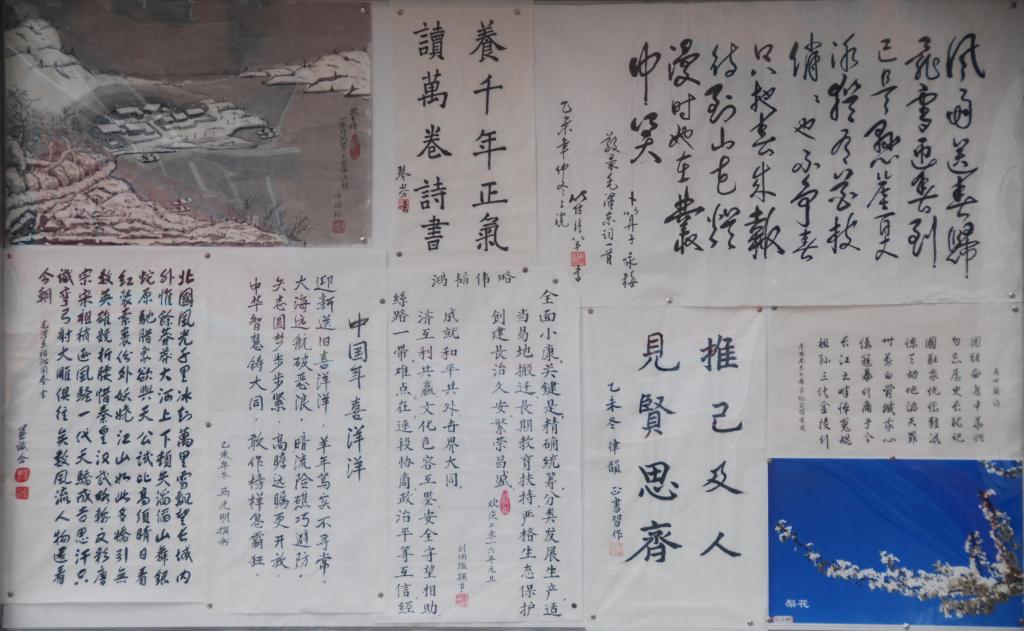 養千年正氣
讀萬卷詩書
風雨送春歸
飛雪迎春到
已是懸崖百丈
冰猶有花枝
俏俏也不爭春
只把春來報
待到山花爛
漫時她在叢
中笑
卜算子詠梅
敬录毛澤东詞一首
乙未年仲冬上浣
北國風光千里冰封萬里雪飄望長城内
外惟餘莽莽大河上下頓失滔滔山舞銀
蛇原馳腊象欲與天公試比高須晴日看
紅裝素裹份外妖嬈江山如此多嬌引無
數英雄競折腰惜秦皇漢武略輸文彩唐
宗宋祖稍遜風騷一代天驕成吉思汗只
識彎弓射大雕俱往矣數風流人物還看
今朝
毛澤東詞沁園春雪
中国年 喜洋洋
迎新送旧喜洋洋，羊年笃实不寻常，
大海远航破恶浪，暗流险礁巧避防，
矢志圆梦步步紧，高瞻远瞩更开放，
中华智慧铸大同，敢作榜样怠霸狂。
乙未年冬 马光明撰书
鸿韬伟略
全面小康关键是精确统筹分类发展生产适
当易地搬迁长期教育扶持严格生态保护
创建長治久安繁荣昌盛
成就和平共外世界大同
济互利共赢文化色容互鉴安全守望相助
絲路一带难点在逐段协商政治平等互信經
欢庆二零一六年元旦
推己及人
見賢思齊
乙未冬 律韻 正書習作
勿忘历史长铭记
长江之畔悼冤魂
祖孙三代金陵行
梨花